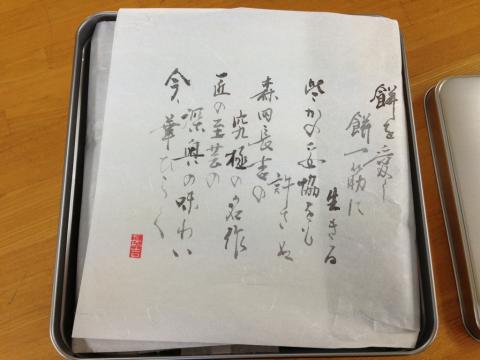 餅を愛し
餅一筋に
生きる
些かの妥協をも
許さぬ
森田長吉の
究極の名作
匠の至芸の
深奥の味わい
今、華ひらく